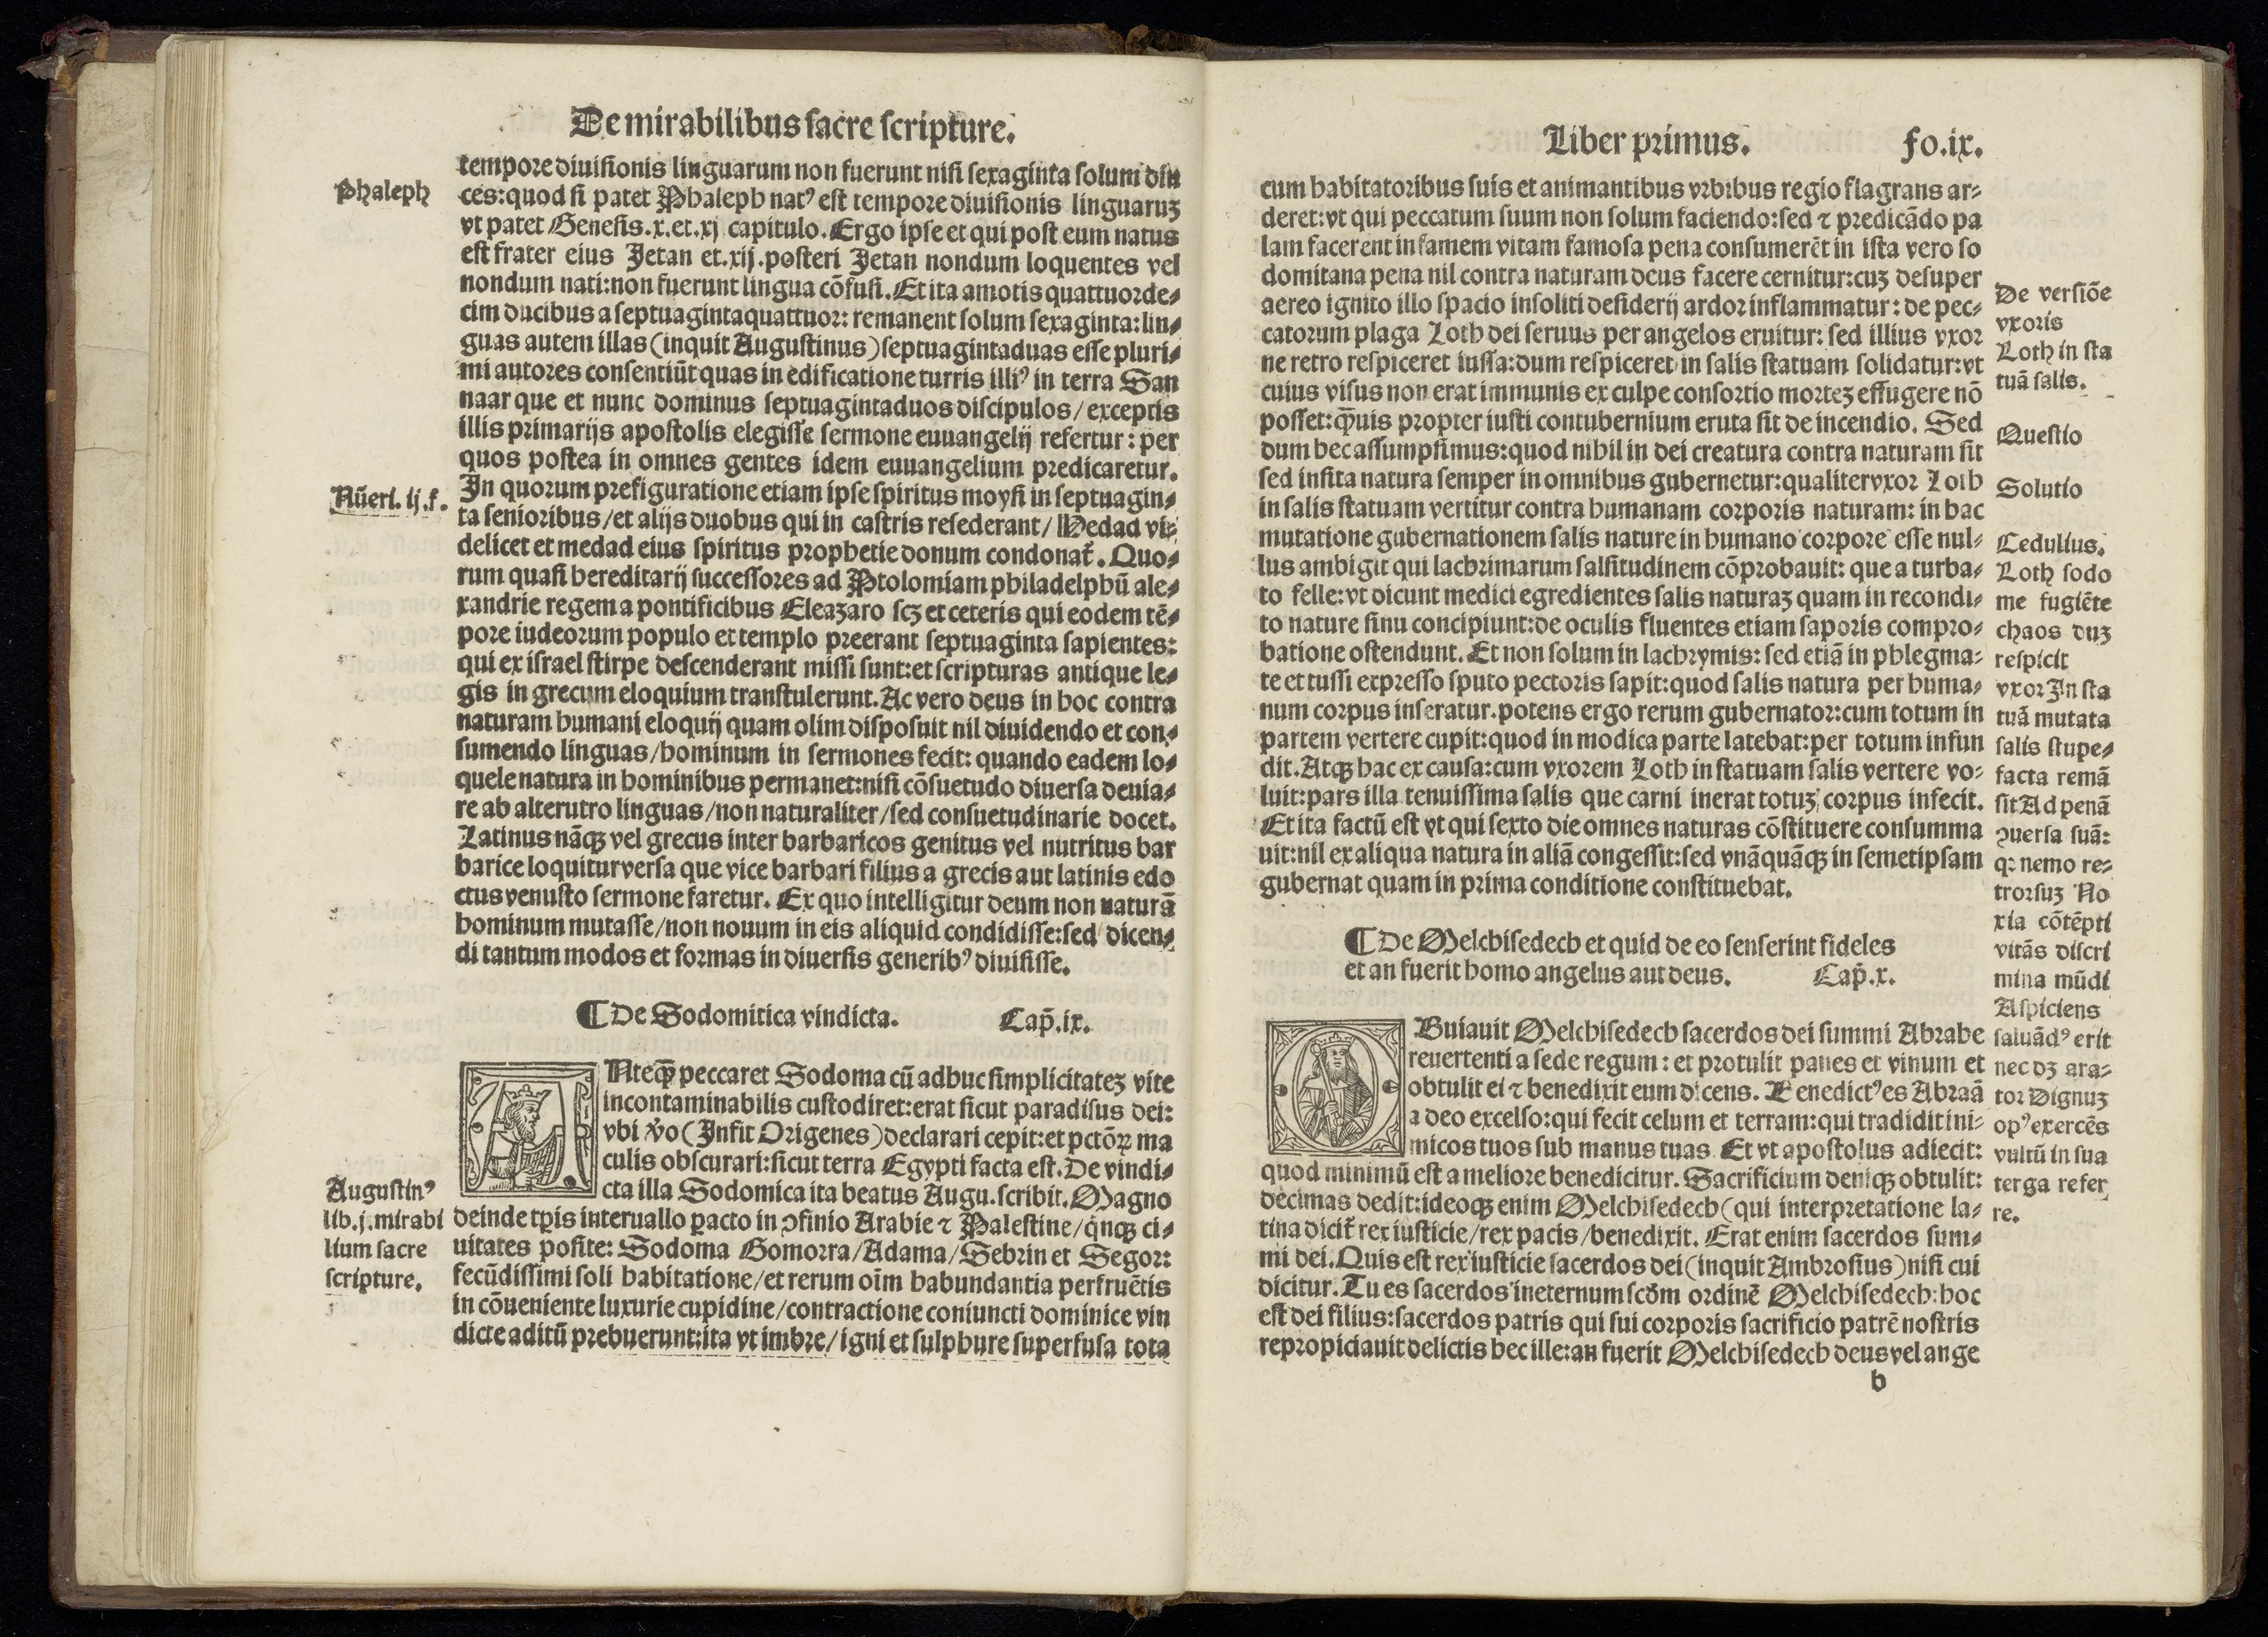 De mirabilibus sacre scripture.
tempore diuisionis linguarum non fuerunt nisi sexaginta solum du
ces:quod si patet Phaleph natꝰ est tempore diuisionis linguaruꝫ
vt patet Genesis.x.et.xj capitulo. Ergo ipse et qui post eum natus
est frater eius Jetan et.xij.posteri Jetan nondum loquentes vel
nondum nati:non fuerunt lingua cōfusi. Et ita amotis quattuorde⸗
cim ducibus a septuagintaquattuor: remanent solum sexaginta:lin⸗
guas autem illas (inquit Augustinus) septuagintaduas esse pluri⸗
mi autores consentiūt quas in edificatione turris illiꝰ in terra San
naar que et nunc dominus septuagintaduos discipulos/exceptis
illis primarijs apostolis elegisse sermone euuangelij refertur: per
quos postea in omnes gentes idem euuangelium predicaretur.
In quorum prefiguratione etiam ipse spiritus moysi in septuagin⸗
ta senioribus/et alijs duobus qui in castris resederant/ Hedad vi⸗
delicet et medad eius spiritus prophetie donum condonat̄. Quo⸗
rum quasi hereditarij successores ad Ptolomiam philadelphū ale⸗
xandrie regem a pontificibus Eleazaro scꝫ et ceteris qui eodem tē⸗
pore iudeorum populo et templo preerant septuaginta sapientes:
qui ex israel stirpe descenderant missi sunt:et scripturas antique le⸗
gis in grecum eloquium transtulerunt. Ac vero deus in hoc contra
naturam humani eloquij quam olim disposuit nil diuidendo et con⸗
sumendo linguas/hominum in sermones fecit: quando eadem lo⸗
quele natura in hominibus permanet:nisi cōsuetudo diuersa deuia⸗
re ab alterutro linguas/non naturaliter/sed consuetudinarie docet.
Latinus nāqꝫ vel grecus inter barbaricos genitus vel nutritus bar
barice loquitur versa que vice barbari filius a grecis aut latinis edo
ctus venusto sermone faretur. Ex quo intelligitur deum non naturā
hominum mutasse/non nouum in eis aliquid condidisse:sed dicen⸗
di tantum modos et formas in diuersis generibꝰ diuisisse.
¶ De Sodomitica vindicta. Cap̄.ix.
Nteqꝫ peccaret Sodoma cū adhuc simplicitateꝫ vite
incontaminabilis custodiret:erat sicut paradisus dei:
vbi v̆o (Infit Origenes) declarari cepit:et pctōꝝ ma
culis obscurari:sicut terra Egypti facta est. De vindi⸗
cta illa Sodomica ita beatus Augu.scribit. Magno
deinde tp̄is interuallo pacto in ꝯfinio Arabie ⁊ Palestine/q̇nqꝫ ci⸗
uitates posite: Sodoma Gomorra/Adama/Sebrin et Segor:
fecūdissimi soli habitatione/et rerum oīm habundantia perfruētis
in cōueniente luxurie cupidine/contractione coniuncti dominice vin
dicte aditū prebuerunt:ita vt imbre/igni et sulphure superfusa tota
Phaleph
Nūeri. ij.f.
Augustinꝰ
lib.j.mirabi
lium sacre
scripture.
Liber primus. fo.ix.
cum habitatoribus suis et animantibus vrbibus regio flagrans ar⸗
deret:vt qui peccatum suum non solum faciendo:sed ⁊ predicādo pa
lam facerent infamem vitam famosa pena consumerēt in ista vero so
domitana pena nil contra naturam deus facere cernitur:cuꝫ desuper
aereo ignito illo spacio insoliti desiderij ardor inflammatur: de pec⸗
catorum plaga Loth dei seruus per angelos eruitur: sed illius vxor
ne retro respiceret iussa:dum respiceret in salis statuam solidatur:vt
cuius visus non erat immunis ex culpe consortio morteꝫ effugere nō
posset:qͣ̄uis propter iusti contubernium eruta sit de incendio. Sed
dum hec assumpsimus:quod nihil in dei creatura contra naturam sit
sed insita natura semper in omnibus gubernetur:qualiter vxor Loth
in salis statuam vertitur contra humanam corporis naturam: in hac
mutatione gubernationem salis nature in humano corpore esse nul⸗
lus ambigit qui lachrimarum salsitudinem cōprobauit: que a turba⸗
to felle:vt dicunt medici egredientes salis naturaꝫ quam in recondi⸗
to nature sinu concipiunt:de oculis fluentes etiam saporis compro⸗
batione ostendunt. Et non solum in lachrymis: sed etiā in phlegma⸗
te et tussi expresso sputo pectoris sapit:quod salis natura per huma⸗
num corpus inseratur.potens ergo rerum gubernator:cum totum in
partem vertere cupit:quod in modica parte latebat:per totum infun
dit. Atqꝫ hac ex causa:cum vxorem Loth in statuam salis vertere vo⸗
luit:pars illa tenuissima salis que carni inerat totuꝫ corpus infecit.
Et ita factū est vt qui sexto die omnes naturas cōstituere consumma
uit:nil ex aliqua natura in aliā congessit:sed vnāquāqꝫ in semetipsam
gubernat quam in prima conditione constituebat.
¶ De Melchisedech et quid de eo senserint fideles
et an fuerit homo angelus aut deus. Cap̄.x.
Buiauit Melchisedech sacerdos dei summi Abrahe
reuertenti a sede regum: et protulit panes et vinum et
obtulit ei ⁊ benedixit eum dicens. Benedictꝰ es Abraā
a deo excelso:qui fecit celum et terram:qui tradidit ini⸗
micos tuos sub manus tuas Et vt apostolus adiecit:
quod minimū est a meliore benedicitur. Sacrificium deniqꝫ obtulit:
decimas dedit:ideoqꝫ enim Melchisedech (qui interpretatione la⸗
tina dicit̄ rex iusticie/rex pacis/benedixit. Erat enim sacerdos sum⸗
mi dei. Quis est rex iusticie sacerdos dei (inquit Ambrosius) nisi cui
dicitur. Tu es sacerdos ineternum scd̄m ordinē Melchisedech:hoc
est dei filius:sacerdos patris qui sui corporis sacrificio patrē nostris
repropiciauit delictis hec ille:an fuerit Melchisedech deus vel ange
b
De versiōe
vxoris
Loth in sta
tuā salis.
Questio
Solutio
Cedulius.
Loth sodo
me fugiēte
chaos duꝫ
respicit
vxor In sta
tuā mutata
salis stupe⸗
facta remā
sit Ad penā
ꝯuersa suā:
q: nemo re⸗
trorsuꝫ No
xia cōtēpti
vitās discri
mina mūdi
Aspiciens
saluādꝰ erit
nec dꝫ ara⸗
tor Dignuꝫ
opꝰ exercēs
vultū in sua
terga refer
re.